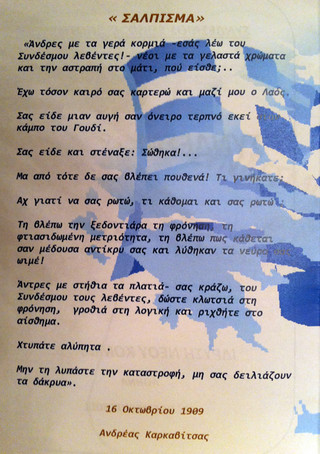 « ΣΑΛΠΙΣΜΑ»
«Άνδρες με τα γερά κορμιά -εσάς λέω του
Συνδέσμου λεβέντες!- νέοι με τα γελαστά χρώματα
και την αστραπή στο μάτι, πού είσθε;..
Έχω τόσον καιρό σας καρτερώ και μαζί μου ο Λαός.
Σας είδε μιαν αυγή σαν όνειρο τερπνό εκεί
κάμπο του Γουδί.
Σας είδε και στέναξε: Σώθηκα!...
Μα από τότε δε σας βλέπει πουθενά! Τι γινήκατε;
Αχ γιατί να σας ρωτώ, τι κάθομαι και σας ρωτώ
Τη βλέπω την ξεδοντιάρα τη φρόνηση, τη
φτιασιδωμένη μετριότητα, τη βλέπω πως κάθεται
σαν μέδουσα αντίκρύ σας και λύθηκαν τα νεύρα σας
ωιμέ!
Άντρες με στήθια τα πλατιά- σας κράζω, του
Συνδέσμου τους λεβέντες, δώστε κλωτσιά στη
φρόνηση, γροθιά στη λογική και ριχθήτε στο
αίσθημα.
Χτυπάτε αλύπητα .
Μην τη λυπάστε την καταστροφή, μη σας δειλιάζουν
τα δάκρυα».
16 Οκτωβρίου 1909
Ανδρέας Καρκαβίτσας